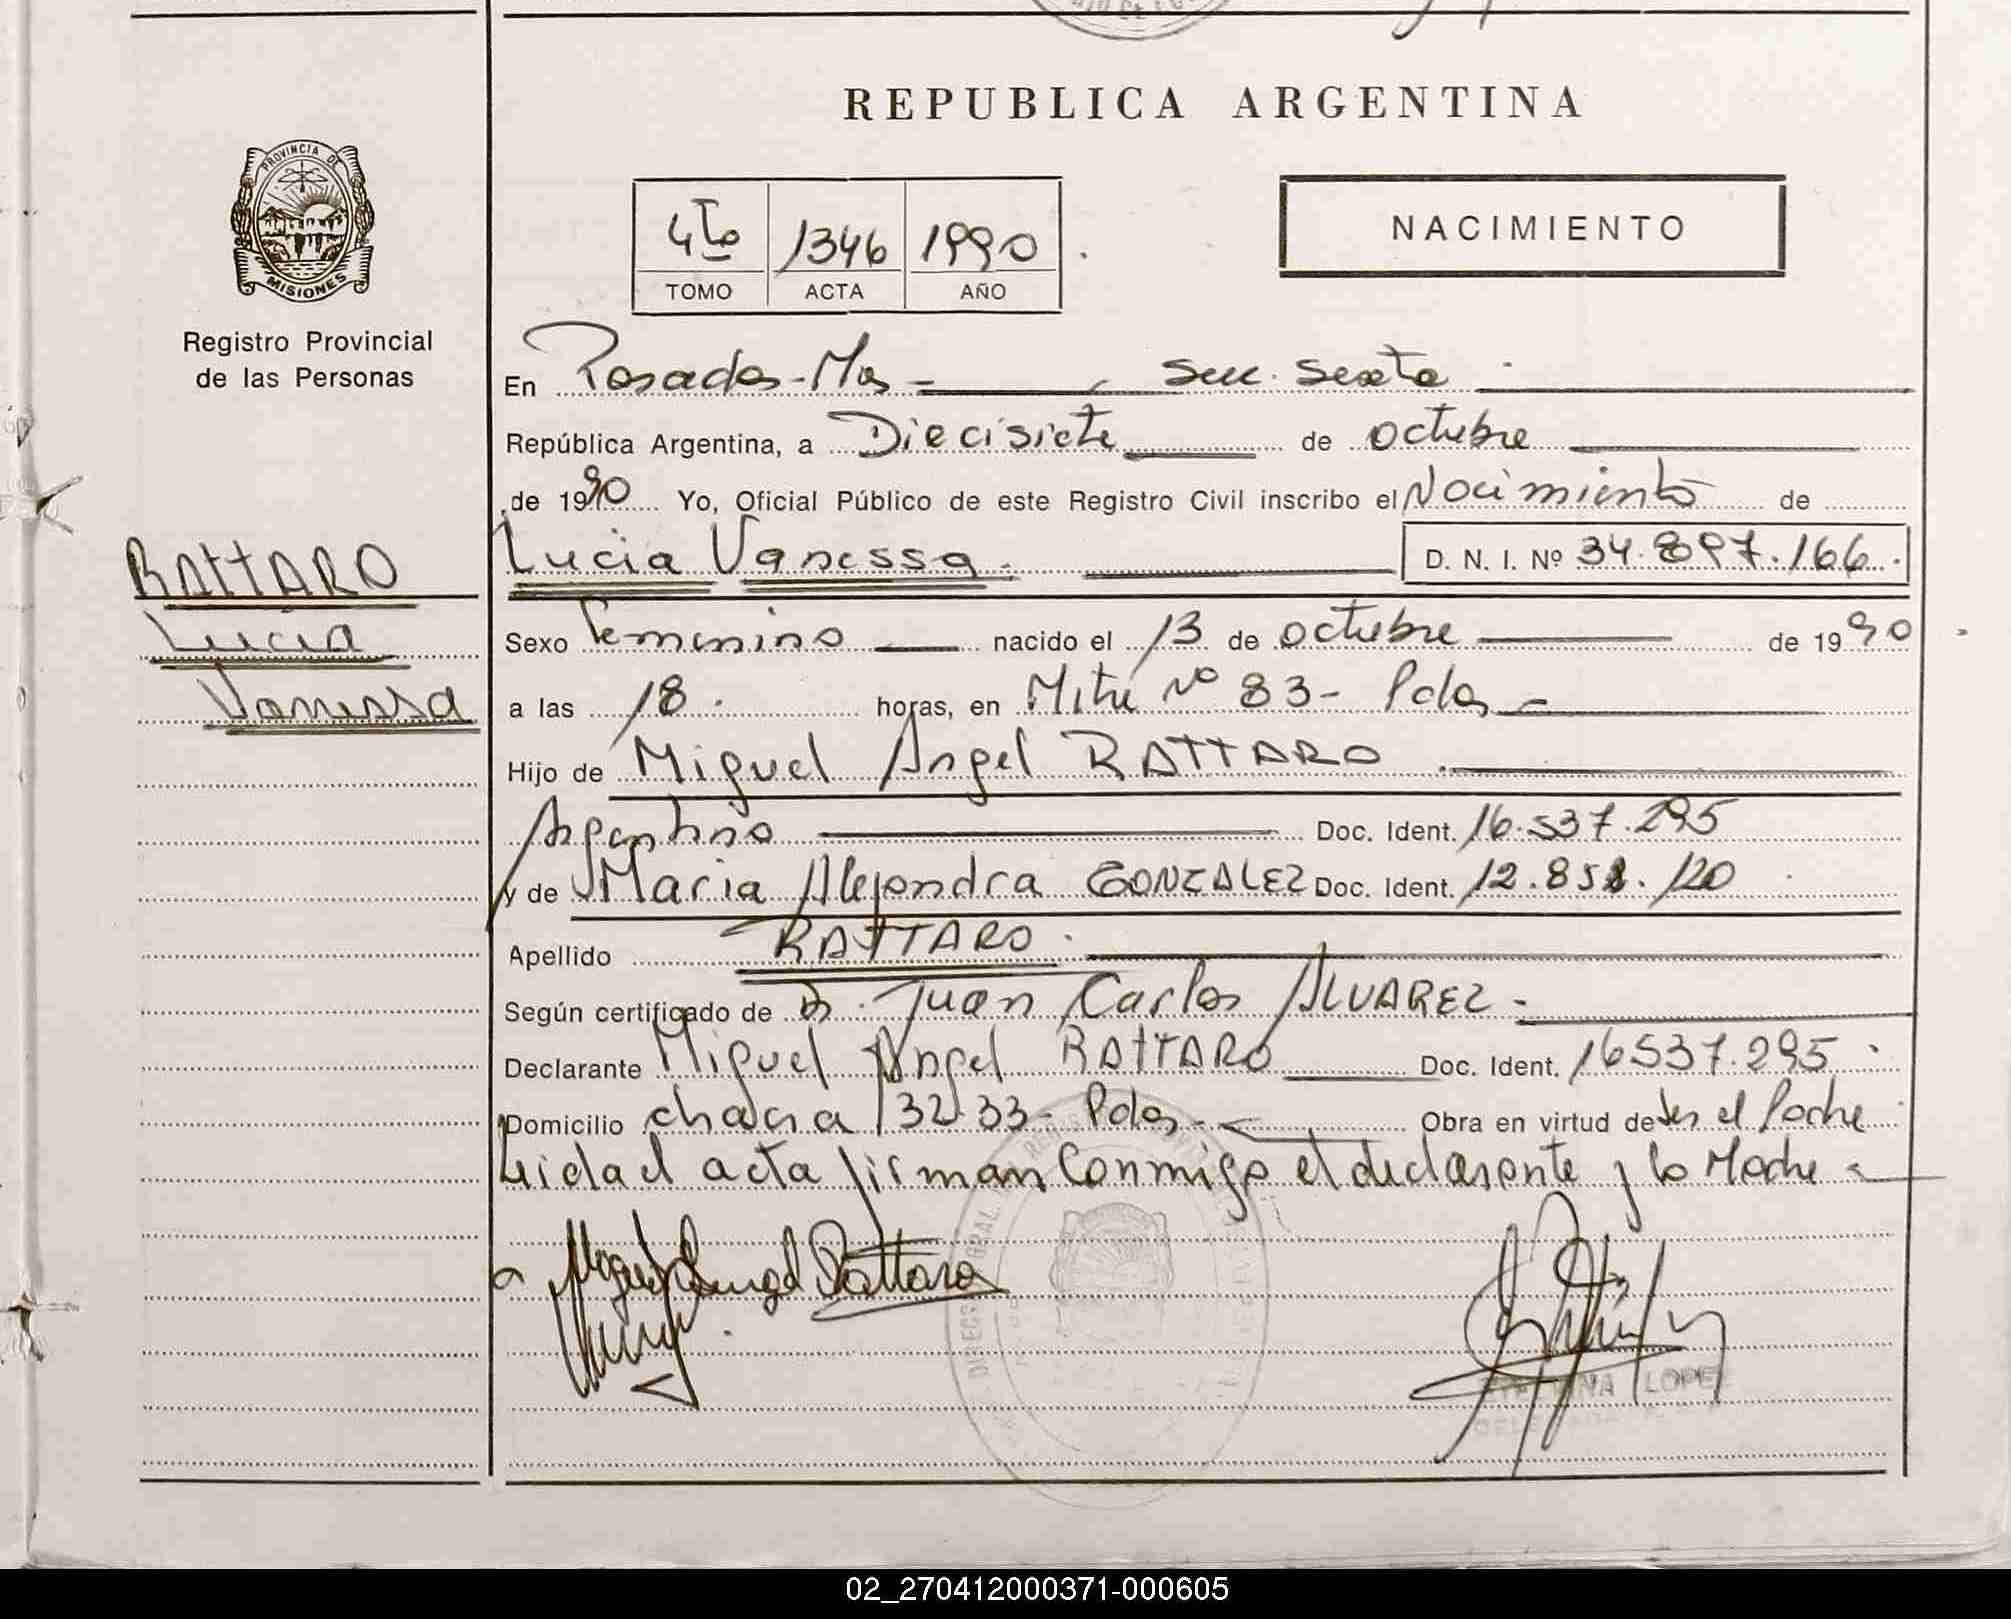 REPUBLICA ARGENTINA
PROVINCIA DE
MISIONES
Registro Provincial
de las Personas
4to 1346 1990
TOMO ACTA AÑO
NACIMIENTO
En Posadas - Mns - Secc. Sexta
República Argentina, a Diecisiete de octubre
de 1990 Yo, Oficial Público de este Registro Civil inscribo el Nacimiento de
RATTARO
Lucia
Vanessa
Lucia Vanessa. D. N. I. Nº 34.897.166.
Sexo Femenino nacido el 13 de octubre de 1990
a las 18. horas, en Mitre Nº 83 - Pdas -
Hijo de Miguel Angel RATTARO
Argentino Doc. Ident. 16.537.295
y de Maria Alejandra GONZALEZ Doc. Ident. 12.852.120
Apellido RATTARO.
Según certificado de Dr. Juan Carlos ALVAREZ -
Declarante Miguel Angel RATTARO Doc. Ident. 16537.295
Domicilio chacra 132.33 - Pdas - Obra en virtud de ser el Padre
Leida el acta firman conmigo el declarante y la Madre
Miguel Angel Rattaro
LOPEZ
02_270412000371-000605